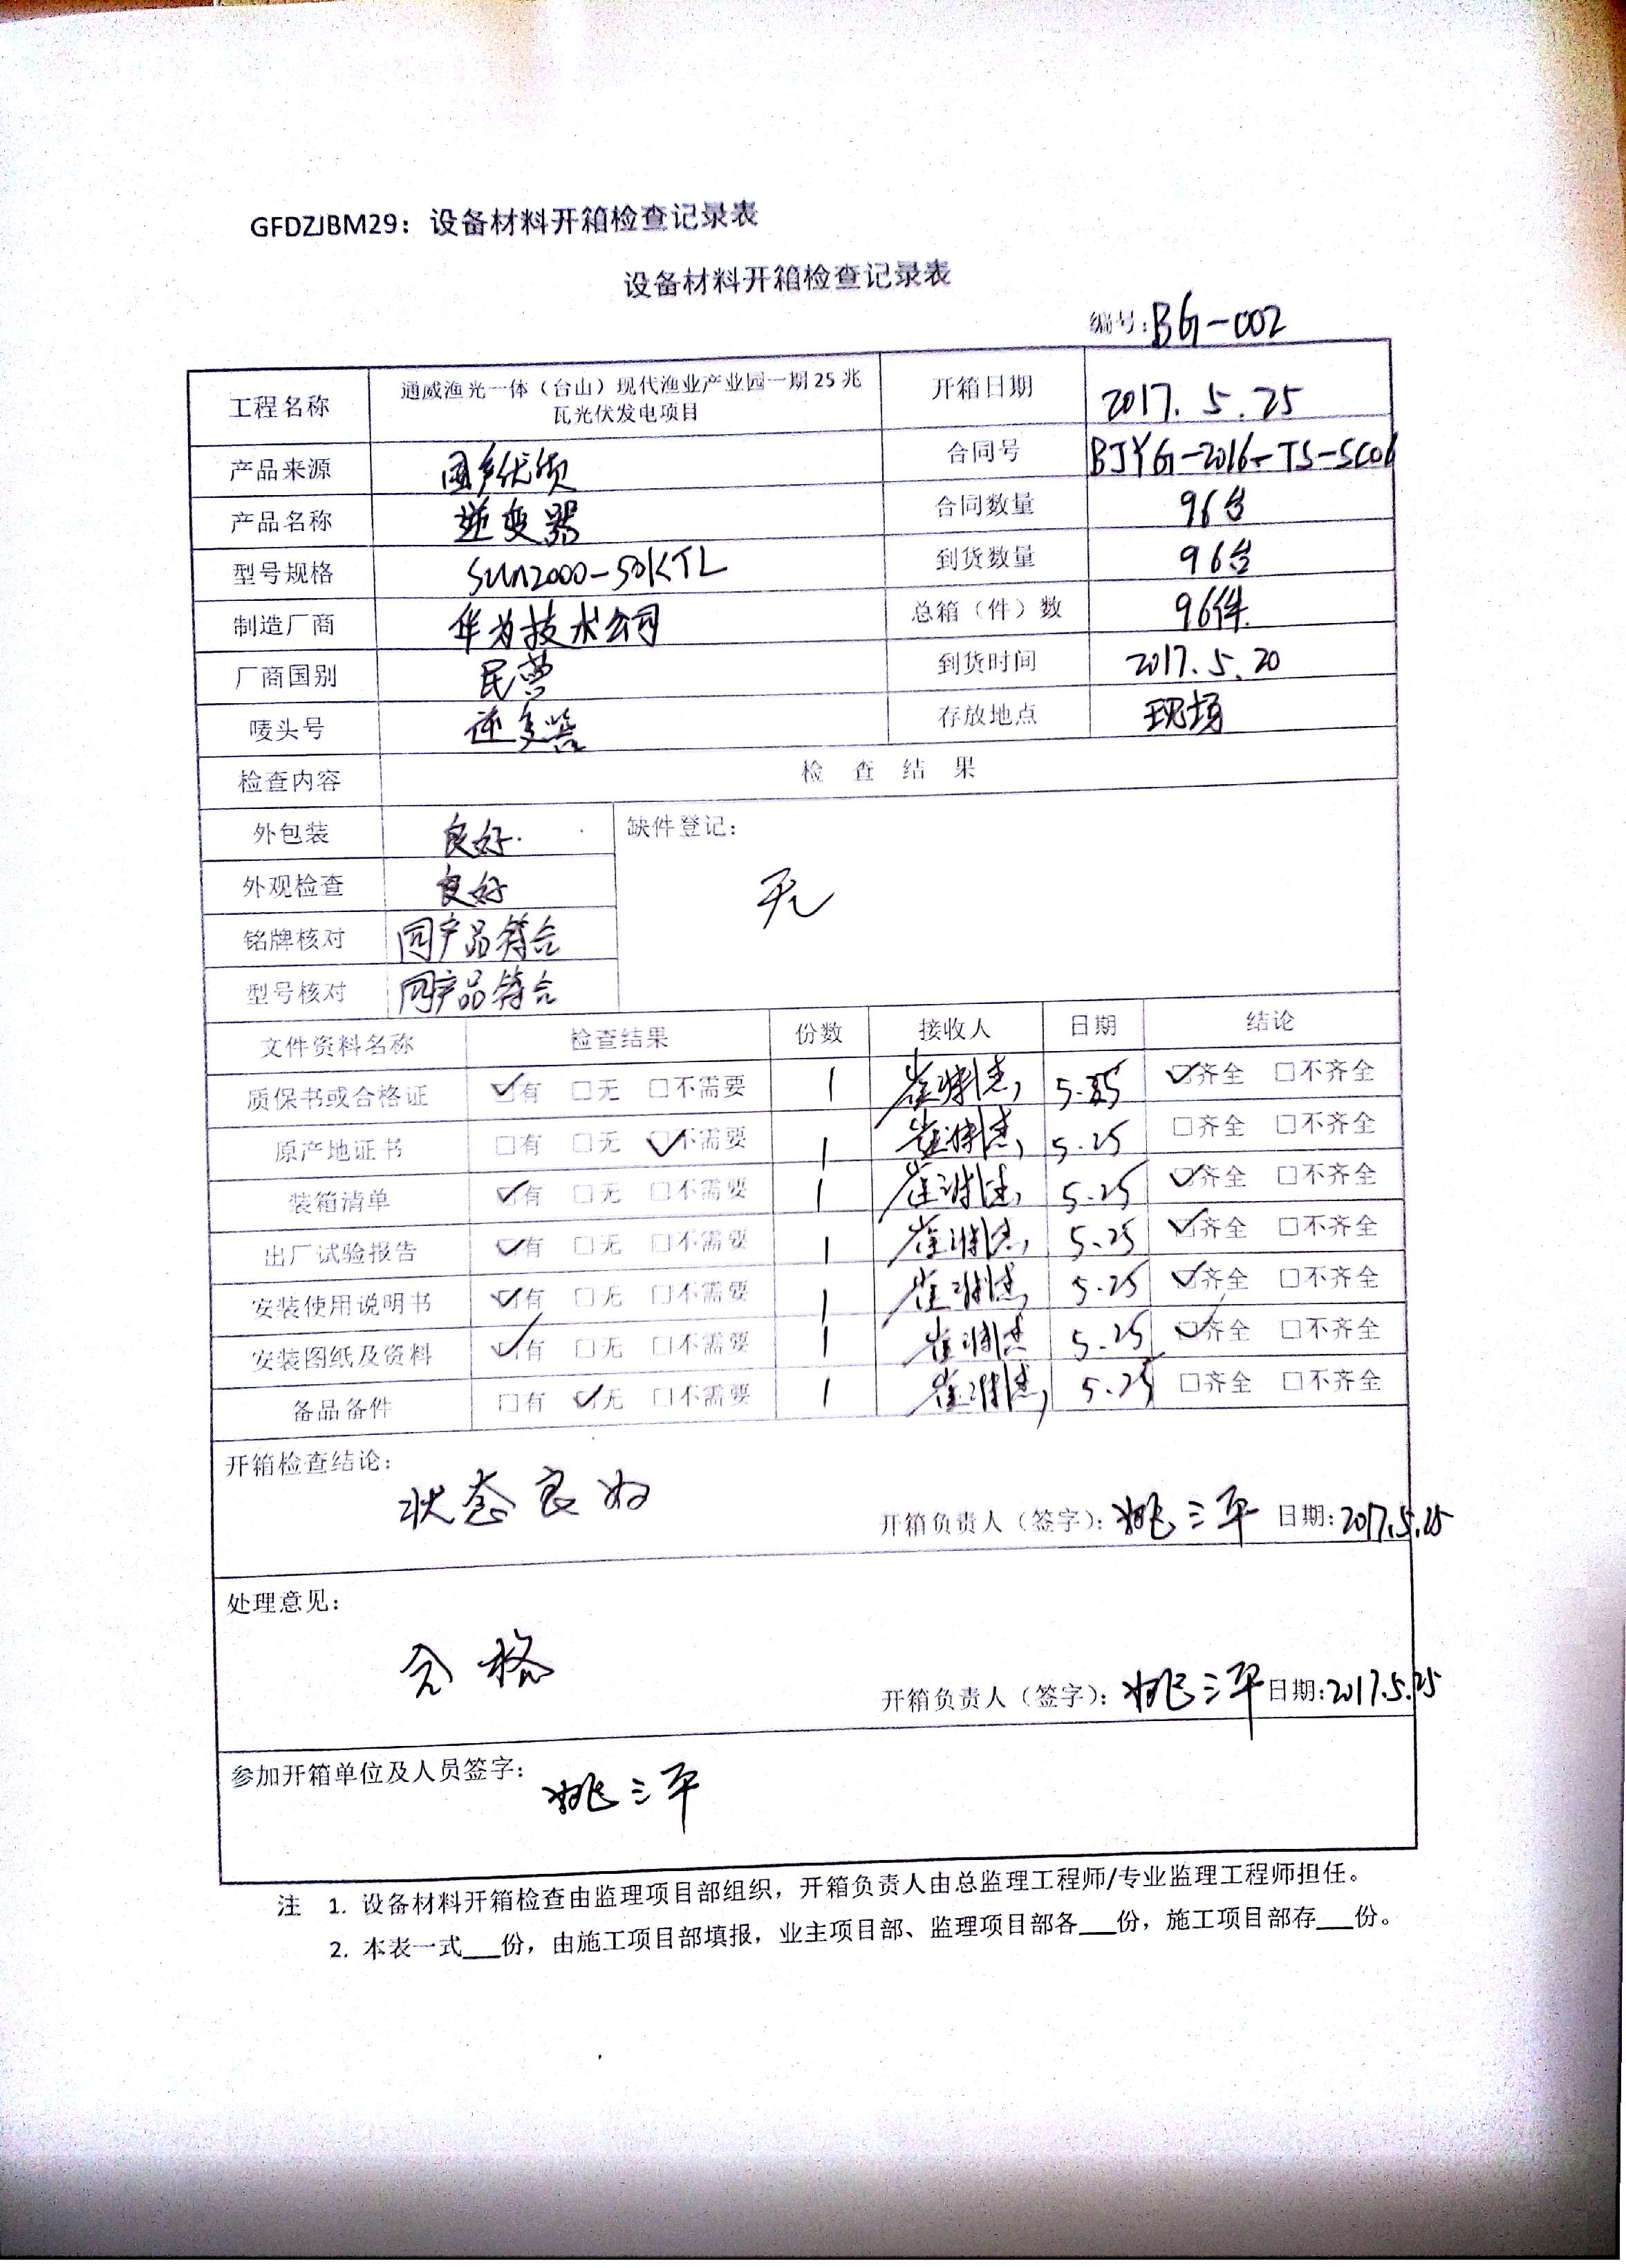 GFDZJBM29：设备材料开箱检查记录表
设备材料开箱检查记录表
编号：BG-002
工程名称 通威渔光一体（台山）现代渔业产业园一期25兆瓦光伏发电项目 开箱日期 2017.5.25
产品来源 国产优质 合同号 BJYG-2016-TS-SC06
产品名称 逆变器 合同数量 96台
型号规格 SUN2000-50KTL 到货数量 96台
制造厂商 华为技术公司 总箱（件）数 96件
厂商国别 民营 到货时间 2017.5.20
唛头号 逆变器 存放地点 现场
检查内容 检查结果
外包装 良好 缺件登记：
外观检查 良好 无
铭牌核对 同产品符合
型号核对 同产品符合
文件资料名称 检查结果 份数 接收人 日期 结论
质保书或合格证 ☑有 □无 □不需要 1 5.25 ☑齐全 □不齐全
原产地证书 □有 □无 ☑不需要 1 5.25 □齐全 □不齐全
装箱清单 ☑有 □无 □不需要 1 5.25 ☑齐全 □不齐全
出厂试验报告 ☑有 □无 □不需要 1 5.25 ☑齐全 □不齐全
安装使用说明书 ☑有 □无 □不需要 1 5.25 ☑齐全 □不齐全
安装图纸及资料 ☑有 □无 □不需要 1 5.25 ☑齐全 □不齐全
备品备件 □有 ☑无 □不需要 1 5.25 □齐全 □不齐全
开箱检查结论：
状态良好
开箱负责人（签字）：姚三平 日期：2017.5.25
处理意见：
合格
开箱负责人（签字）：姚三平 日期：2017.5.25
参加开箱单位及人员签字：姚三平
注 1. 设备材料开箱检查由监理项目部组织，开箱负责人由总监理工程师/专业监理工程师担任。
2. 本表一式___份，由施工项目部填报，业主项目部、监理项目部各___份，施工项目部存___份。